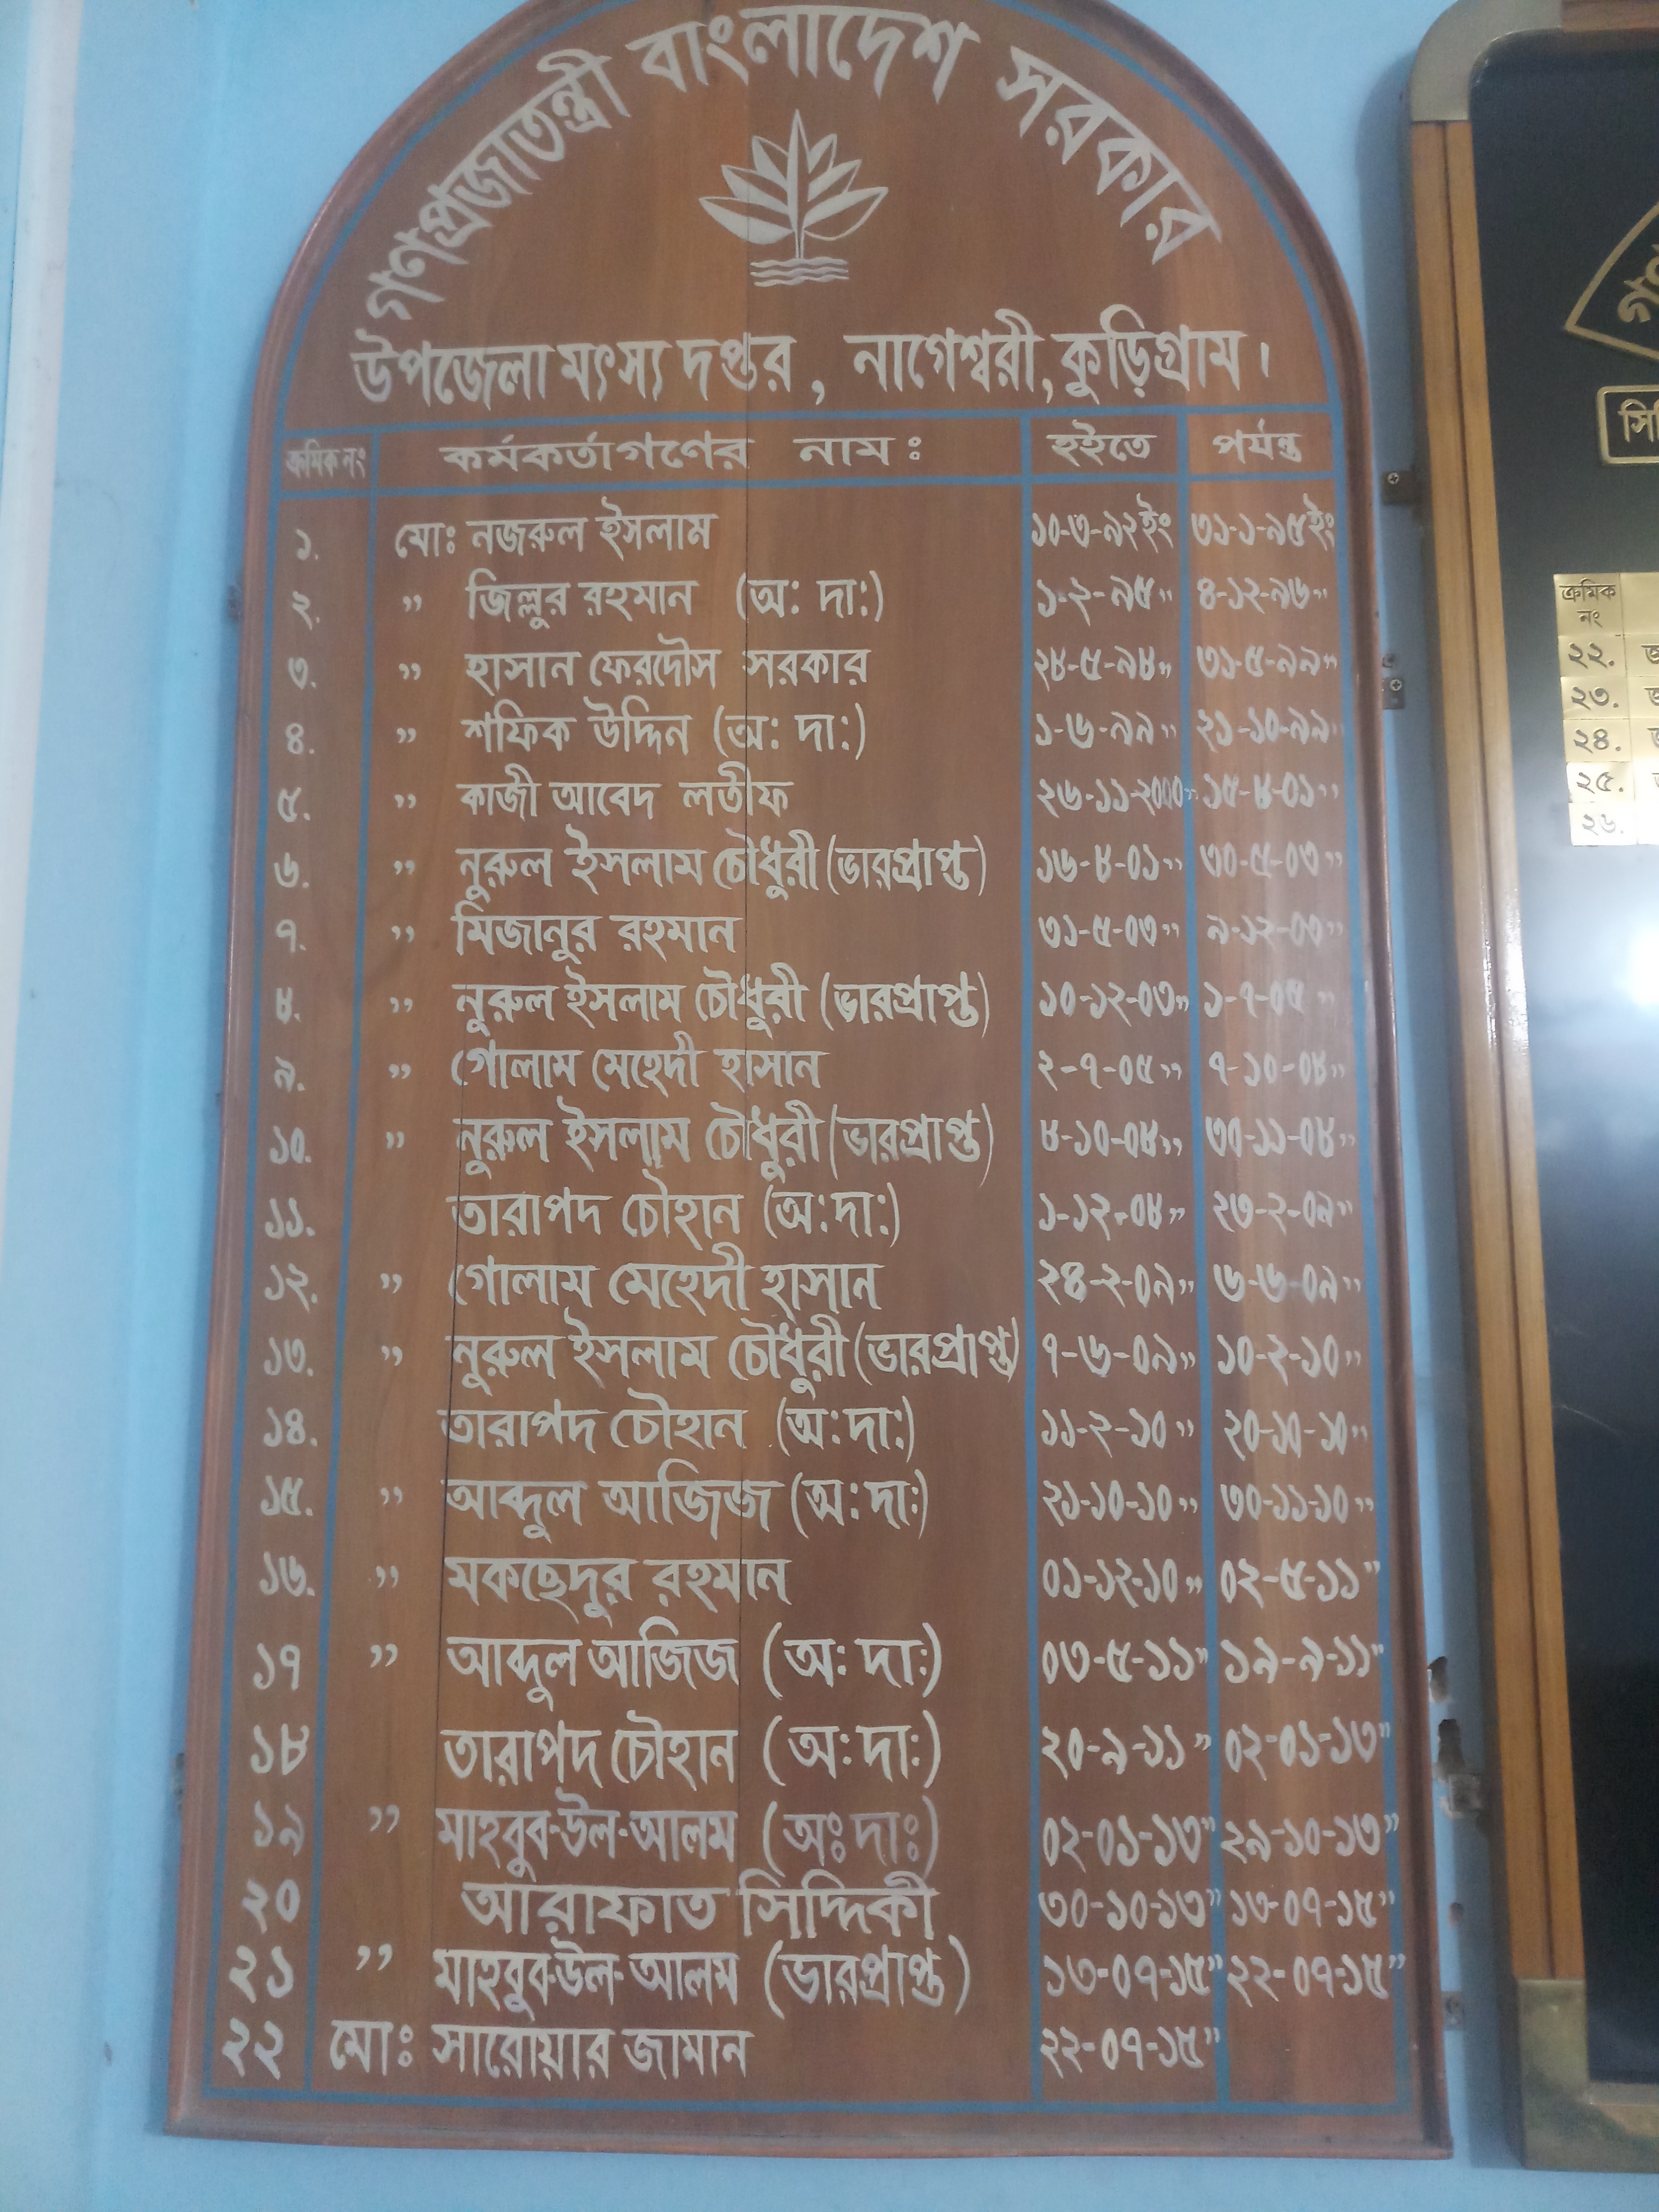 গণপ্রজাতন্ত্রী বাংলাদেশ সরকার
উপজেলা মৎস্য দপ্তর, নাগেশ্বরী, কুড়িগ্রাম।
ক্রমিক নং কর্মকর্তাগণের নাম: হইতে পর্যন্ত
১. মোঃ নজরুল ইসলাম ১০-৩-৯২ইং ৩১-১-৯৫ইং
২. " জিল্লুর রহমান (অ: দা:) ১-২-৯৫" ৪-১২-৯৬"
৩. " হাসান ফেরদৌস সরকার ২৮-৫-৯৮" ৩১-৫-৯৯"
৪. " শফিক উদ্দিন (অ: দা:) ১-৬-৯৯" ২১-১০-৯৯"
৫. " কাজী আবেদ লতীফ ২৬-১১-২০০০" ১৫-৮-০১"
৬. " নুরুল ইসলাম চৌধুরী (ভারপ্রাপ্ত) ১৬-৮-০১" ৩০-৫-০৩"
৭. " মিজানুর রহমান ৩১-৫-০৩" ৯-১২-০৩"
৮. " নুরুল ইসলাম চৌধুরী (ভারপ্রাপ্ত) ১০-১২-০৩" ১-৭-০৫"
৯. " গোলাম মেহেদী হাসান ২-৭-০৫" ৭-১০-০৮"
১০. " নুরুল ইসলাম চৌধুরী (ভারপ্রাপ্ত) ৮-১০-০৮" ৩০-১১-০৮"
১১. তারাপদ চৌহান (অ:দা:) ১-১২-০৮" ২৩-২-০৯"
১২. " গোলাম মেহেদী হাসান ২৪-২-০৯" ৬-৬-০৯"
১৩. " নুরুল ইসলাম চৌধুরী (ভারপ্রাপ্ত) ৭-৬-০৯" ১০-২-১০"
১৪. তারাপদ চৌহান (অ:দা:) ১১-২-১০" ২০-১০-১০"
১৫. " আব্দুল আজিজ (অ:দা:) ২১-১০-১০" ৩০-১১-১০"
১৬. " মকছেদুর রহমান ০১-১২-১০" ০২-৫-১১"
১৭ " আব্দুল আজিজ (অ: দা:) ০৩-৫-১১" ১৯-৯-১১"
১৮ তারাপদ চৌহান (অ:দা:) ২০-৯-১১" ০২-০১-১৩"
১৯ " মাহবুব-উল-আলম (অঃদাঃ) ০২-০১-১৩" ২৯-১০-১৩"
২০ আরাফাত সিদ্দিকী ৩০-১০-১৩" ১৩-০৭-১৫"
২১ " মাহবুব-উল-আলম (ভারপ্রাপ্ত) ১৩-০৭-১৫" ২২-০৭-১৫"
২২ মোঃ সারোয়ার জামান ২২-০৭-১৫"
ক্রমিক
নং
২২.
২৩.
২৪.
২৫.
২৬.